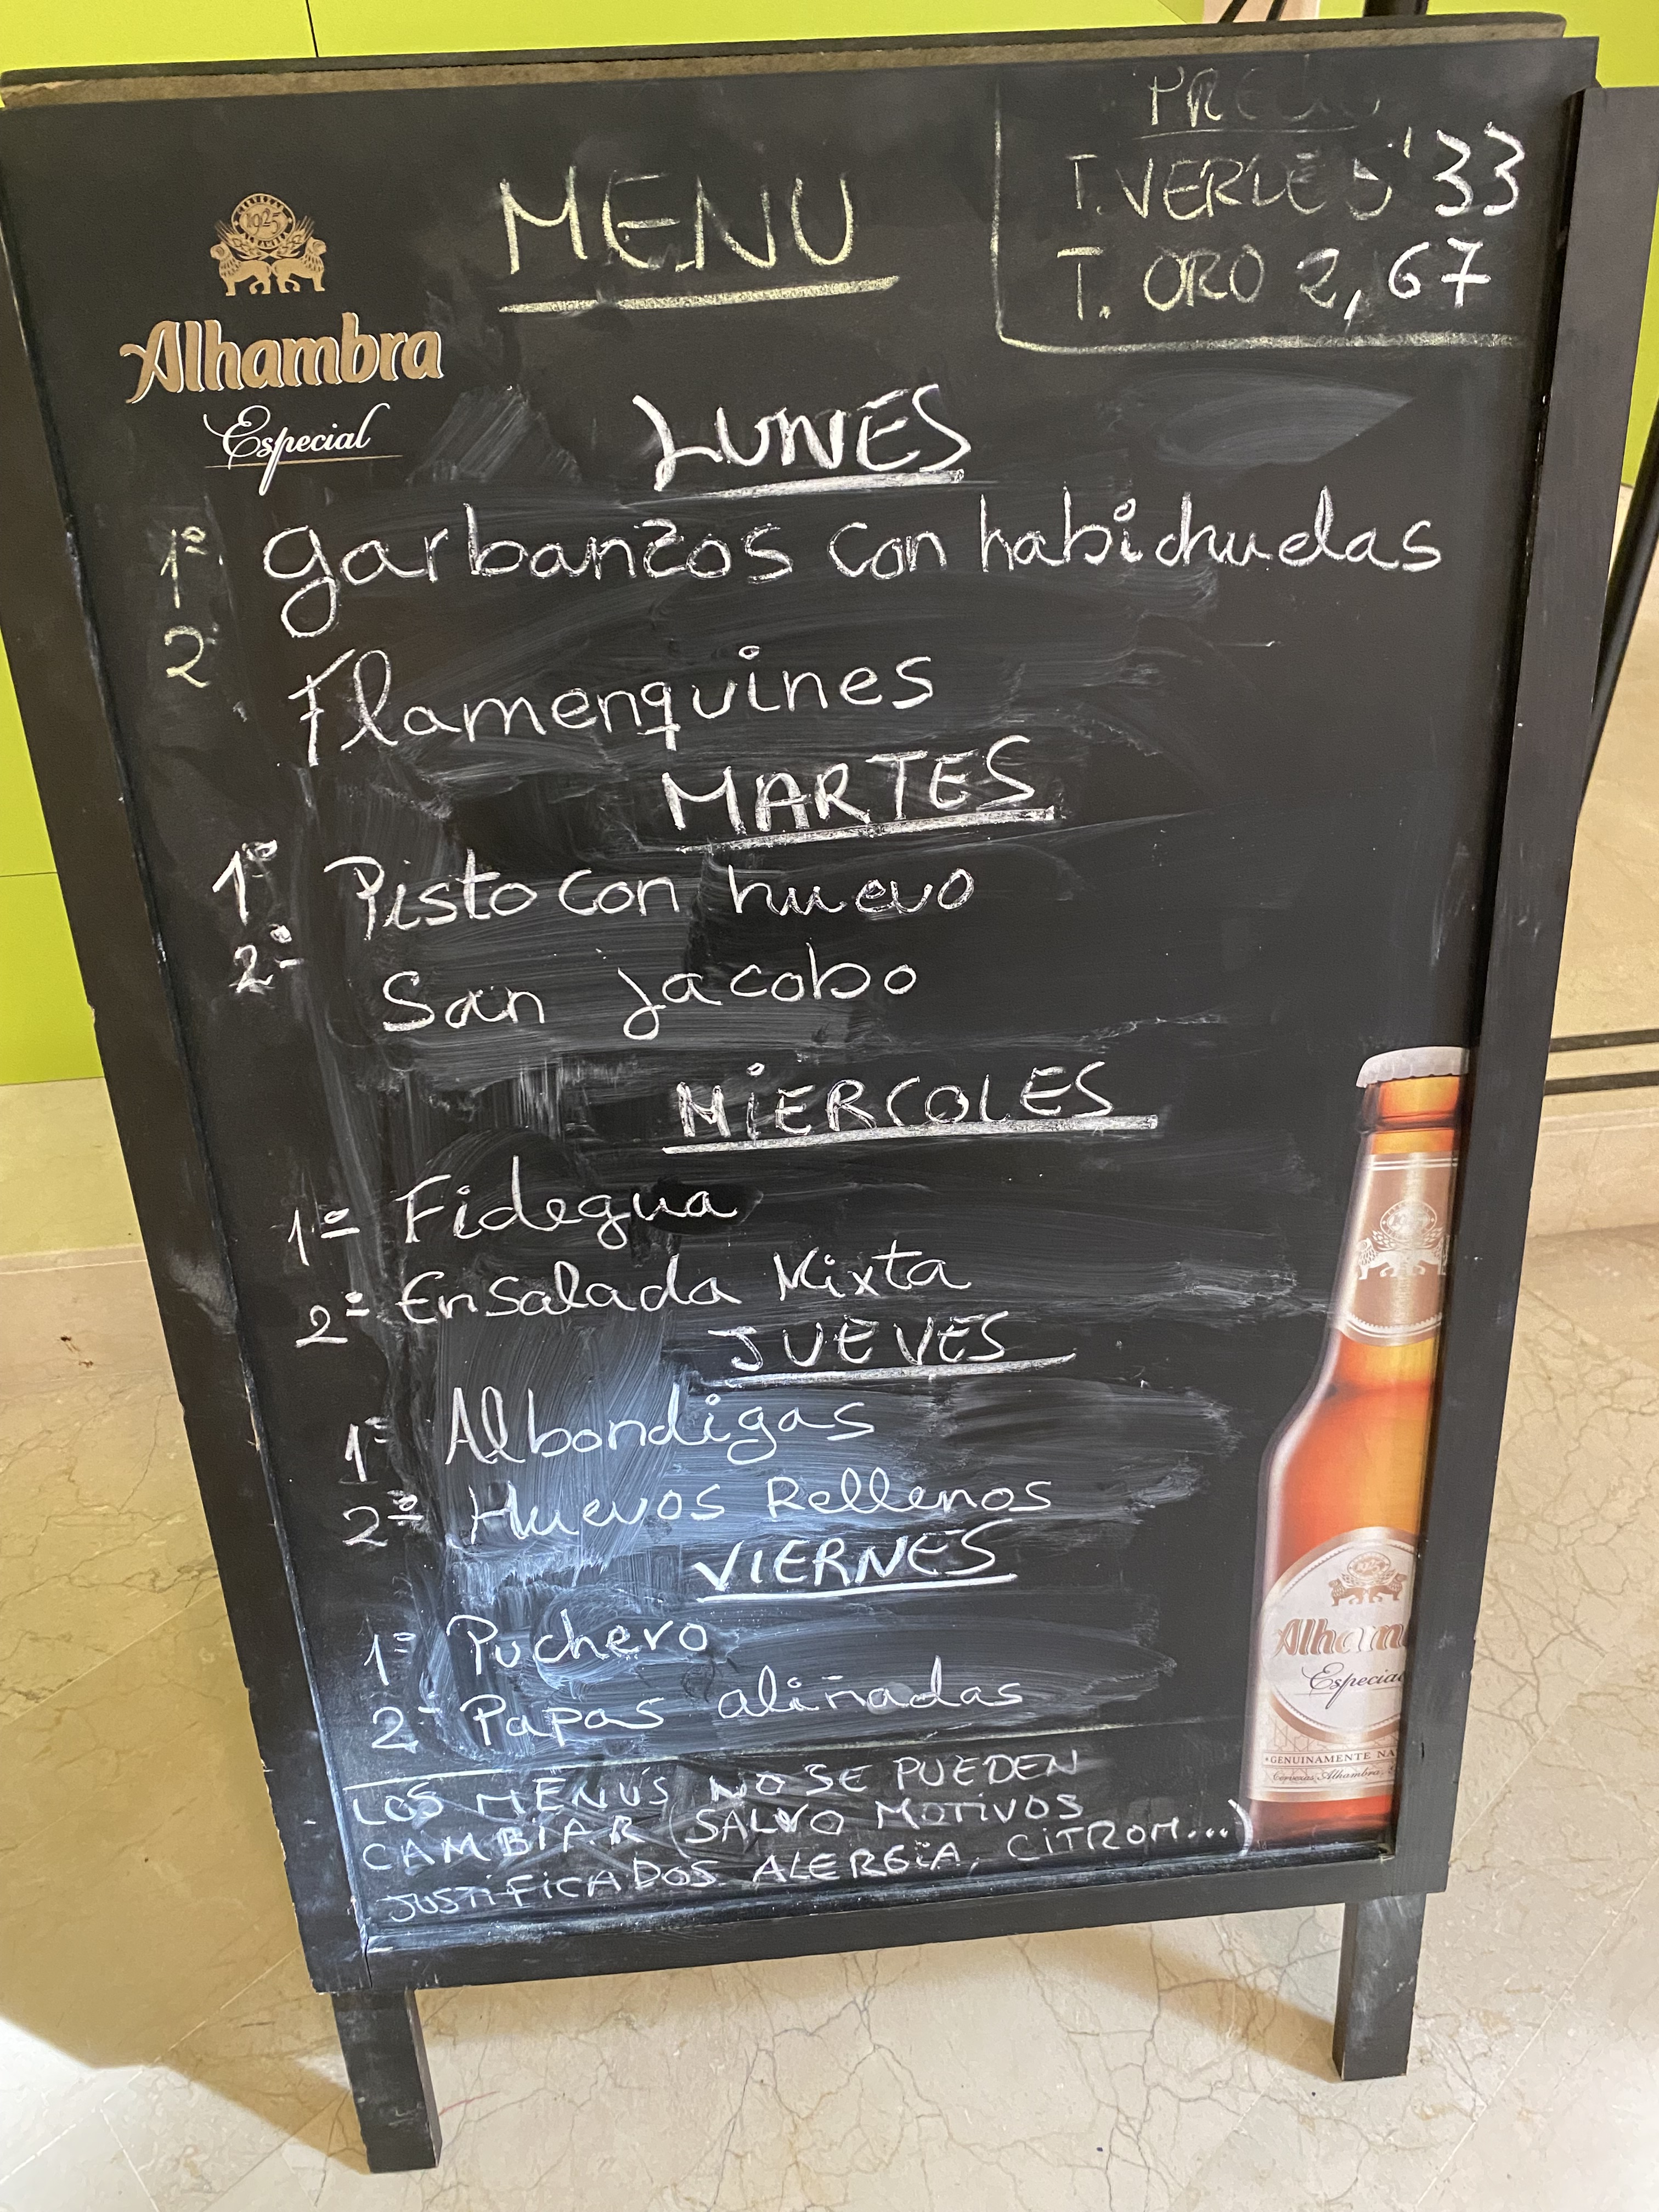 PRECIO
T. VERDE 5'33
T. ORO 2,67
MENU
1925
Alhambra
Especial
LUNES
1º garbanzos con habichuelas
2º
Flamenquines
MARTES
1º Pisto con huevo
2º San Jacobo
MIERCOLES
1º Fidegua
2º Ensalada Mixta
JUEVES
1º Albondigas
2º Huevos Rellenos
VIERNES
1º Puchero
2º Papas aliñadas
LOS MENÚS NO SE PUEDEN
CAMBIAR (SALVO MOTIVOS
JUSTIFICADOS ALERGIA, CITROM...)
Alham
Especial
GENUINAMENTE NA
Cervezas Alhambra, S